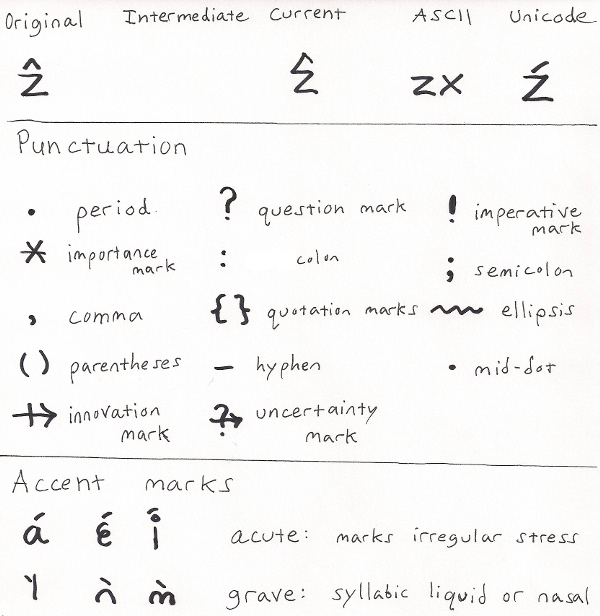 Original Intermediate Current ASCII Unicode
ẑ ẑ zx ź
Punctuation
. period. ? question mark ! imperative mark
* importance mark : colon ; semicolon
, comma {} quotation marks ~~ ellipsis
() parentheses – hyphen · mid-dot
innovation mark uncertainty mark
Accent marks
á é acute: marks irregular stress
ǹ m̀ grave: syllabic liquid or nasal